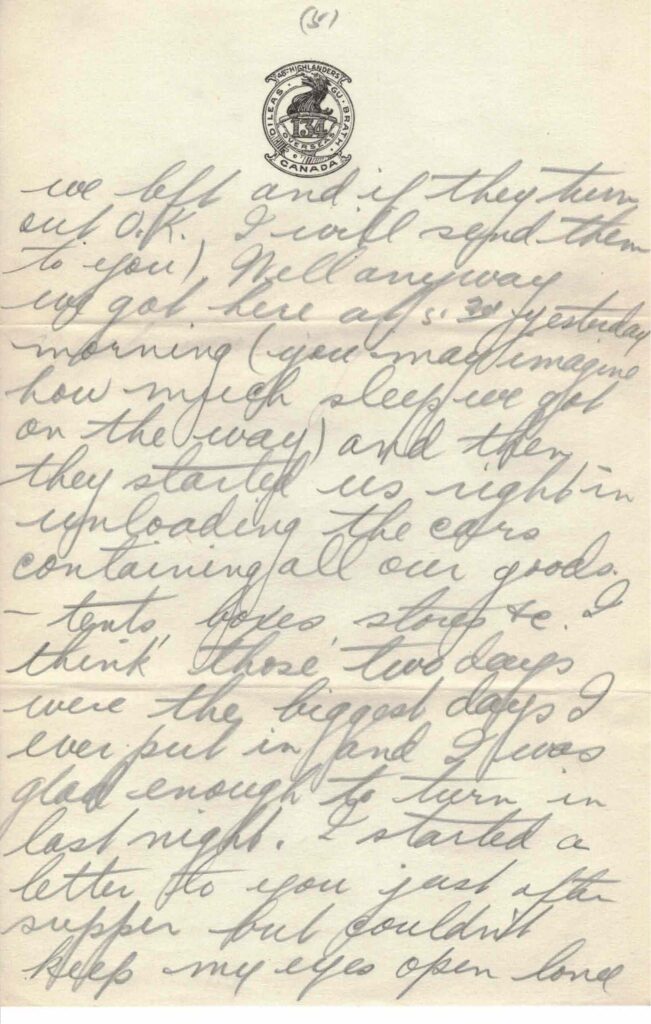 (5)
48TH HIGHLANDERS
DILEAS GU BRATH
134
OVERSEAS
CANADA
we left and if they turn
out O.K. I will send them
to you). Well anyway
we got here at 5:30 yesterday
morning (you may imagine
how much sleep we got
on the way) and then
they started us right in
unloading the cars
containing all our goods.
- tents, boxes, stores &c. I
think those two days
were the biggest days I
ever put in and I was
glad enough to turn in
last night. I started a
letter to you just after
supper but couldn't
keep my eyes open long